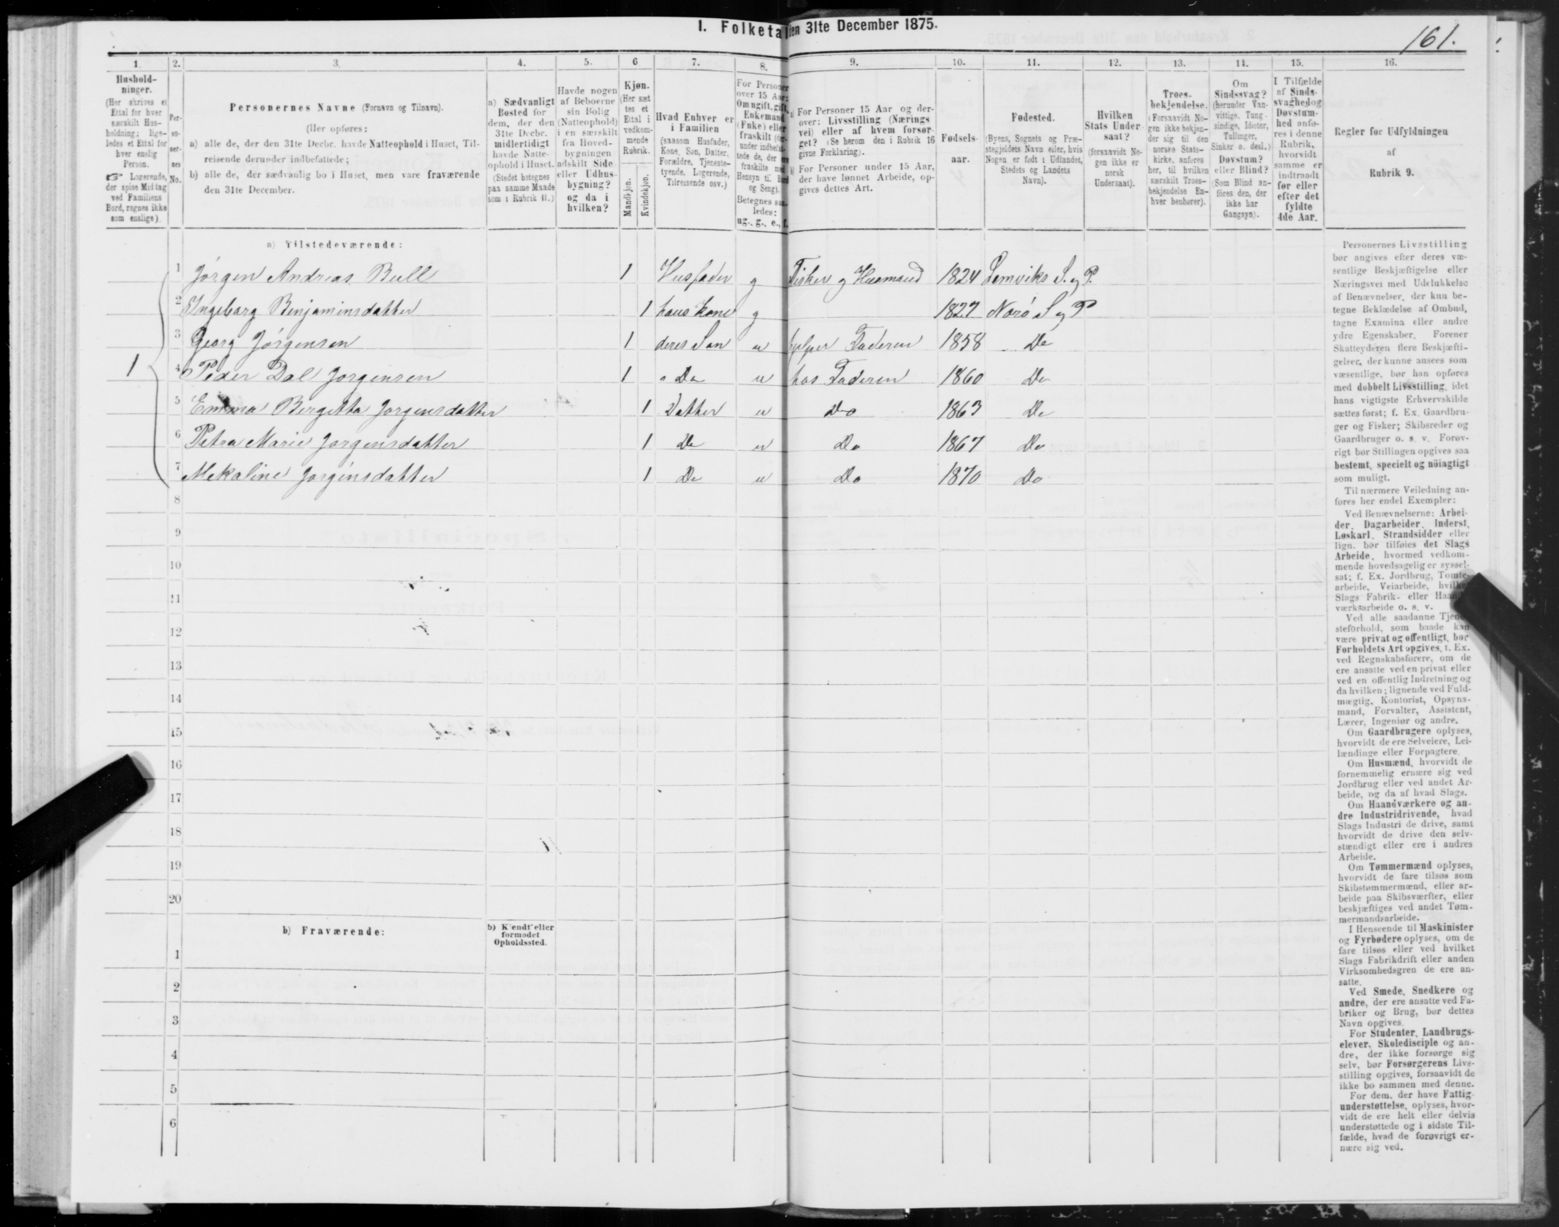 I. Folketa   en 31te December 1875.
161.
1.
2.
3.
4.
5.
6
7.
8.
9.
10.
11.
12.
13.
11.
15.
16.
Hushold-
ninger.
(Her skrives et
Ettal for hver
særskilt Hus-
holdning; lige-
ledes et Ettal for
hver enslig
Person.
☞ Logerende,
der spise Middag
ved Familiens
Bord, regnes ikke
som enslige).
Per-
so-
ner-
nes
No.
Personernes Navne (Fornavn og Tilnavn).
(Her opføres:
a) alle de, der den 31te Decbr. havde Natteophold i Huset, Til-
reisende derunder indbefattede;
b) alle de, der sædvanlig bo i Huset, men vare fraværende
den 31te December.
a) Sædvanligt
Bosted for
dem, der den
31te Decbr.
midlertidigt
havde Natte-
ophold i Huset.
(Stedet betegnes
paa samme Maade
som i Rubrik 11.)
Havde nogen
af Beboerne
sin Bolig
(Natteophold)
i en særskilt
fra Hoved-
bygningen
adskilt Side
eller Udhus-
bygning?
og da i
hvilken?
Kjøn.
(Her sæt-
tes et
Ettal i
vedkom-
mende
Rubrik.
Mandkjøn.
Kvindekjøn.
Hvad Enhver er
i Familien
(saasom Husfader,
Kone, Søn, Datter,
Forældre, Tjeneste-
tyende, Logerende,
Tilreisende osv.)
For Personer
over 15 Aar:
Om ugift, gift,
Enkemand
(Enke) eller
fraskilt
Betegnes saa-
ledes:
ug., g., e., f.
a) For Personer 15 Aar og der-
over: Livsstilling (Nærings-
vei) eller af hvem forsør-
get? (Se herom den i Rubrik 16
givne Forklaring).
b) For Personer under 15 Aar,
der have lønnet Arbeide, op-
gives dettes Art.
Fødsels-
aar.
Fødested.
(Byens, Sognets og Præ-
stegjeldets Navn eller, hvis
Nogen er født i Udlandet,
Stedets og Landets
Navn).
Hvilken
Stats Under-
saat?
(forsaavidt No-
gen ikke er
norsk
Undersaat).
Troes-
bekjendelse.
(Forsaavidt No-
gen ikke bekjen-
der sig til den
norske Stats-
kirke, anføres
her, til hvilken
særskilt Troes-
bekjendelse En-
hver henhører).
Om
Sindssvag?
(herunder Van-
vittige, Tung-
sindige, Idioter,
Tullinger,
Sinker o. desl.)
Døvstum?
eller Blind?
(Som Blind an-
føres den, der
ikke har
Gangsyn).
I Tilfælde
af Sinds-
svaghed og
Døvstum-
hed anfø-
res i denne
Rubrik,
hvorvidt
samme er
indtraadt
før eller
efter det
fyldte
4de Aar.
Regler for Udfyldningen
af
Rubrik 9.
a) Tilstedeværende:
1
1 Jørgen Andreas Bull 1 Husfader g Fisker og Husmand 1824 Lemviks S. og P.
2 Ingeborg Benjaminsdatter 1 hans Kone g 1827 Norø S og P
3 Georg Jørgensen 1 deres Søn u hjelper Faderen 1858 Do
4 Peder Dal Jørgensen 1 " Do u hos Faderen 1860 Do
5 Emma Bergitta Jørgensdatter 1 Datter u Do 1863 Do
6 Petra Marie Jørgensdatter 1 Do u Do 1867 Do
7 Mekaline Jørgensdatter 1 Do u Do 1870 Do
8
9
10
11
12
13
14
15
16
17
18
19
20
b) Fraværende:
b) Kjendt eller
formodet
Opholdssted.
1
2
3
4
5
6
Personernes Livsstilling
bør angives efter deres væ-
sentlige Beskjæftigelse eller
Næringsvei med Udelukkelse
af Benævnelser, der kun be-
tegne Beklædelse af Ombud,
tagne Examina eller andre
ydre Egenskaber. Forener
Skatteyderen flere Beskjæfti-
gelser, der kunne ansees som
væsentlige, bør han opføres
med dobbelt Livsstilling, idet
hans vigtigste Erhvervskilde
sættes først; f. Ex. Gaardbru-
ger og Fisker; Skibsreder og
Gaardbruger o. s. v. Forøv-
rigt bør Stillingen opgives saa
bestemt, specielt og nöiagtigt
som muligt.
Til nærmere Veiledning an-
føres her endel Exempler:
Ved Benævnelserne: Arbei-
der, Dagarbeider, Inderst,
Løskarl, Strandsidder eller
lign. bør tilføies det Slags
Arbeide, hvormed vedkom-
mende hovedsagelig er syssel-
sat; f. Ex. Jordbrug, Tomte-
arbeide, Veiarbeide, hvilket
Slags Fabrik- eller Haand-
værksarbeide o. s. v.
Ved alle saadanne Tjene-
steforhold, som baade kan
være privat og offentligt, bør
Forholdets Art opgives, f. Ex.
ved Regnskabsførere, om de
ere ansatte ved en privat eller
ved en offentlig Indretning og
da hvilken; lignende ved Fuld-
mægtig, Kontorist, Opsyns-
mand, Forvalter, Assistent,
Lærer, Ingeniør og andre.
Om Gaardbrugere oplyses,
hvorvidt de ere Selveiere, Lei-
lændinge eller Forpagtere.
Om Husmænd, hvorvidt de
fornemmelig ernære sig ved
Jordbrug eller ved andet Ar-
beide, og da af hvad Slags.
Om Haandværkere og an-
dre Industridrivende, hvad
Slags Industri de drive, samt
hvorvidt de drive den selv-
stændigt eller ere i andres
Arbeide.
Om Tømmermænd oplyses,
hvorvidt de fare tilsøs som
Skibstømmermænd, eller ar-
beide paa Skibsværfter, eller
beskjæftiges ved andet Tøm-
mermandsarbeide.
I Henseende til Maskinister
og Fyrbødere oplyses, om de
fare tilsøs eller ved hvilket
Slags Fabrikdrift eller anden
Virksomhedsgren de ere an-
satte.
Ved Smede, Snedkere og
andre, der ere ansatte ved Fa-
briker og Brug, bør dettes
Navn opgives.
For Studenter, Landbrugs-
elever, Skoledisciple og an-
dre, der ikke forsørge sig
selv, bør Forsørgerens Livs-
stilling opgives, forsaavidt de
ikke bo sammen med denne.
For dem, der have Fattig-
understøttelse, oplyses, hvor-
vidt de ere helt eller delvis
understøttede og i sidste Til-
fælde, hvad de forøvrigt er-
nære sig ved.